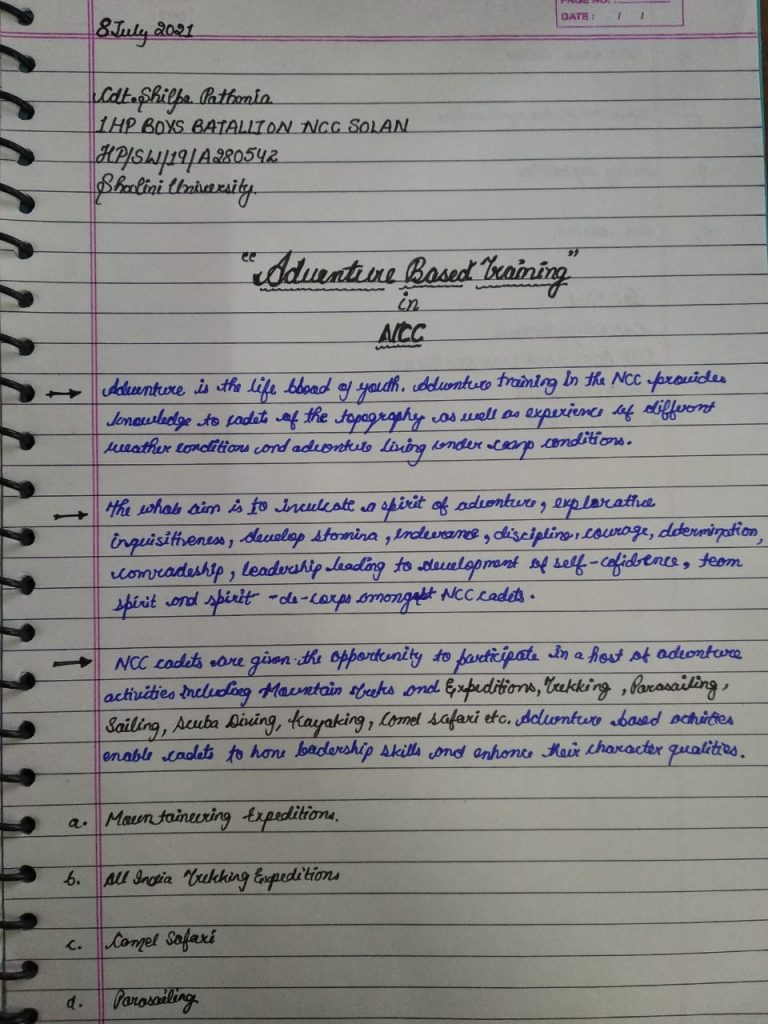 PAGE NO. :
DATE : / /
8 July 2021
Cdt. Shilpa Pathania
1 HP BOYS BATALLION NCC SOLAN
HP/SW/19/A280542
Shoolini University.
"Adventure Based Training"
in
NCC
→ Adventure is the life blood of youth. Adventure training in the NCC provides
knowledge to cadets of the topography as well as experience of different
weather conditions and adventure living under camp conditions.
→ The whole aim is to inculcate a spirit of adventure, explorative
inquisitiveness, develop stamina, endurance, discipline, courage, determination,
comradeship, leadership leading to development of self-cofidence, team
spirit and spirit -de-corps amongst NCC cadets.
→ NCC cadets are given the opportunity to participate in a host of adventure
activities including Mountain treks and Expeditions, Trekking, Parasailing,
Sailing, Scuba Diving, Kayaking, Camel Safari etc. Adventure based activities
enable cadets to hone leadership skills and enhance their character qualities.
a. Mountaineering Expeditions.
b. All India Trekking Expeditions
c. Camel Safari
d. Parasailing